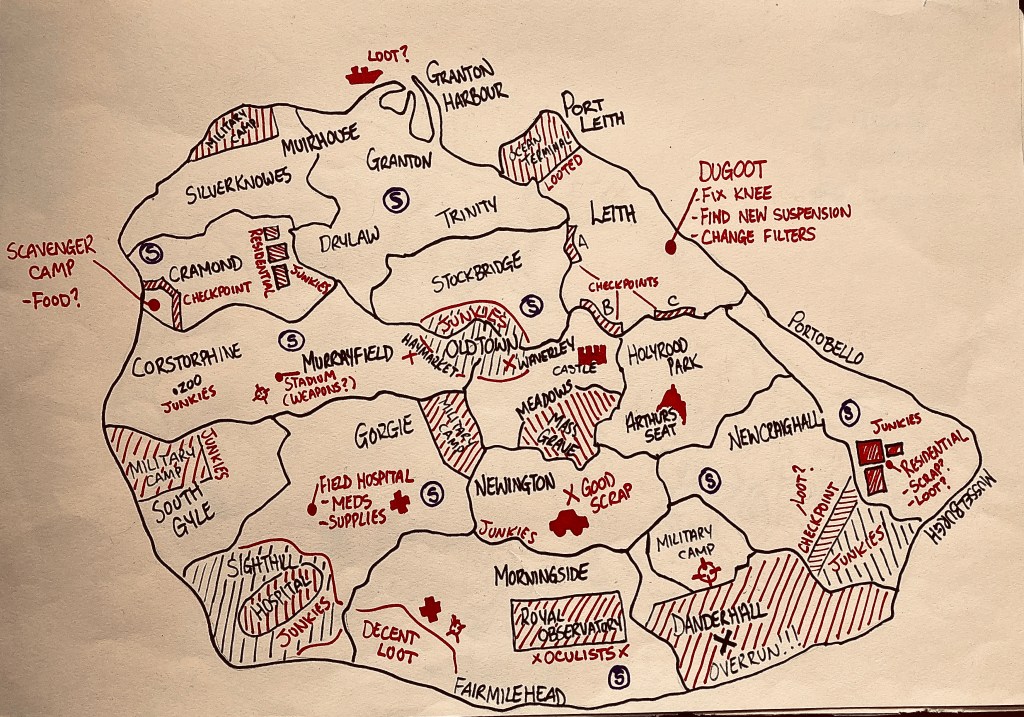 LOOT?
GRANTON
HARBOUR
PORT
LEITH
MILITARY
CAMP
MUIRHOUSE
GRANTON
SILVERKNOWES
OCEAN
TERMINAL
LOOTED
S
TRINITY
LEITH
DUGOOT
- FIX KNEE
- FIND NEW SUSPENSION
- CHANGE FILTERS
SCAVENGER
CAMP
- FOOD?
S
CRAMOND
RESIDENTIAL
JUNKIES
CHECKPOINT
DRYLAW
STOCKBRIDGE
S
A
CHECKPOINTS
B
C
PORTOBELLO
CORSTORPHINE
.200
JUNKIES
S
MURRAYFIELD
STADIUM
(WEAPONS?)
X
HAYMARKET
JUNKIES
OLDTOWN
X WAVERLEY
CASTLE
HOLYROOD
PARK
ARTHURS
SEAT
MEADOWS
MASS
GRAVE
MILITARY
CAMP
JUNKIES
SOUTH
GYLE
GORGIE
MILITARY
CAMP
FIELD HOSPITAL
- MEDS
- SUPPLIES
S
NEWINGTON
X GOOD
SCRAP
JUNKIES
NEWCRAIGHALL
S
LOOT?
CHECKPOINT
JUNKIES
S
JUNKIES
RESIDENTIAL
- SCRAP?
- LOOT?
MUSSELBURGH
MILITARY
CAMP
SIGHTHILL
HOSPITAL
JUNKIES
MORNINGSIDE
ROYAL
OBSERVATORY
X OCULISTS X
DECENT
LOOT
S
FAIRMILEHEAD
DANDERHALL
X
OVERRUN!!!